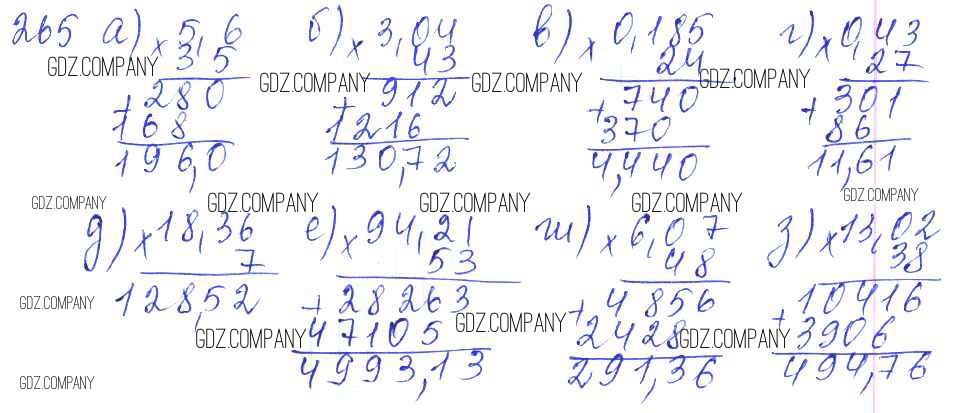 265 а) × 5,6 б) × 3,04 в) × 0,185 г) × 0,43
35 43 24 27
GDZ.COMPANY GDZ.COMPANY GDZ.COMPANY GDZ.COMPANY
+ 280 + 912 + 740 + 301
168 1216 370 86
196,0 130,72 4,440 11,61
GDZ.COMPANY GDZ.COMPANY GDZ.COMPANY GDZ.COMPANY GDZ.COMPANY
д) × 18,36 е) × 94,21 ж) × 6,07 з) × 13,02
7 53 48 38
128,52 + 28263 + 4856 + 10416
GDZ.COMPANY
47105 2428 3906
GDZ.COMPANY GDZ.COMPANY GDZ.COMPANY
4993,13 291,36 494,76
GDZ.COMPANY